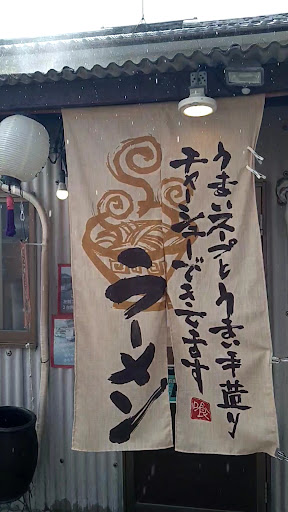 うまいスープとうまい手造り
チャーシューできてます
ラーメン
喰